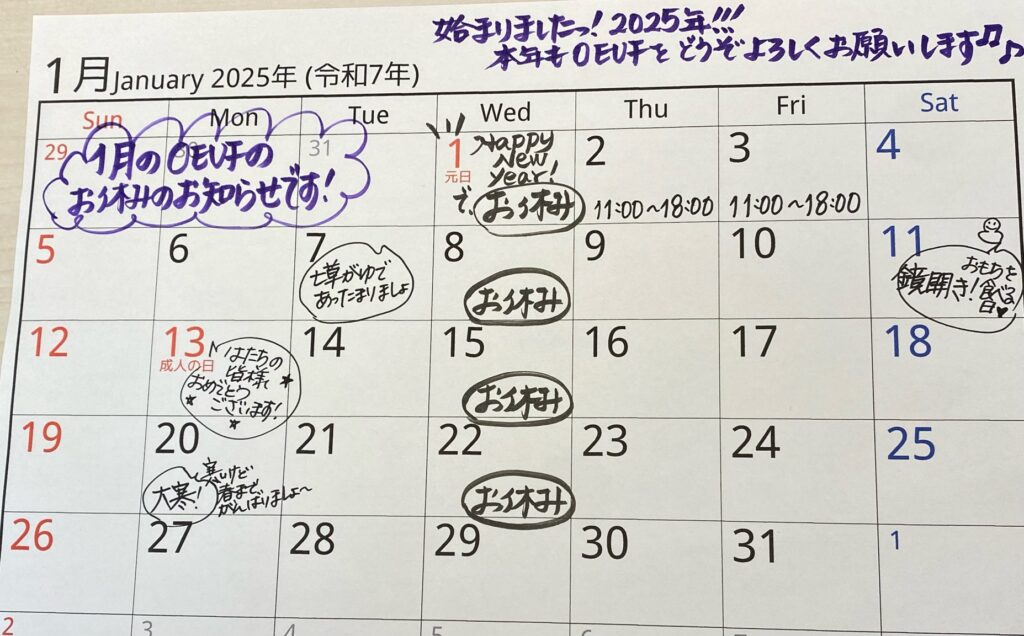 始まりましたっ！2025年!!!
本年もOEUFをどうぞよろしくお願いします♫♪
1月January 2025年 (令和7年)
Sun Mon Tue Wed Thu Fri Sat
29 30 31 1 2 3 4
元日
Happy
New
Year!
で、お休み
11:00～18:00 11:00～18:00
1月のOEUFの
お休みのお知らせです！
5 6 7 8 9 10 11
七草がゆで
あったまりましょ
お休み
鏡開き！
おもちを
食べる
日♥
12 13 14 15 16 17 18
成人の日
はたちの
皆様
おめでとう
ございます！
お休み
19 20 21 22 23 24 25
大寒！
寒いけど
春まで
がんばりましょ～
お休み
26 27 28 29 30 31 1
2 3 4 5 6 7